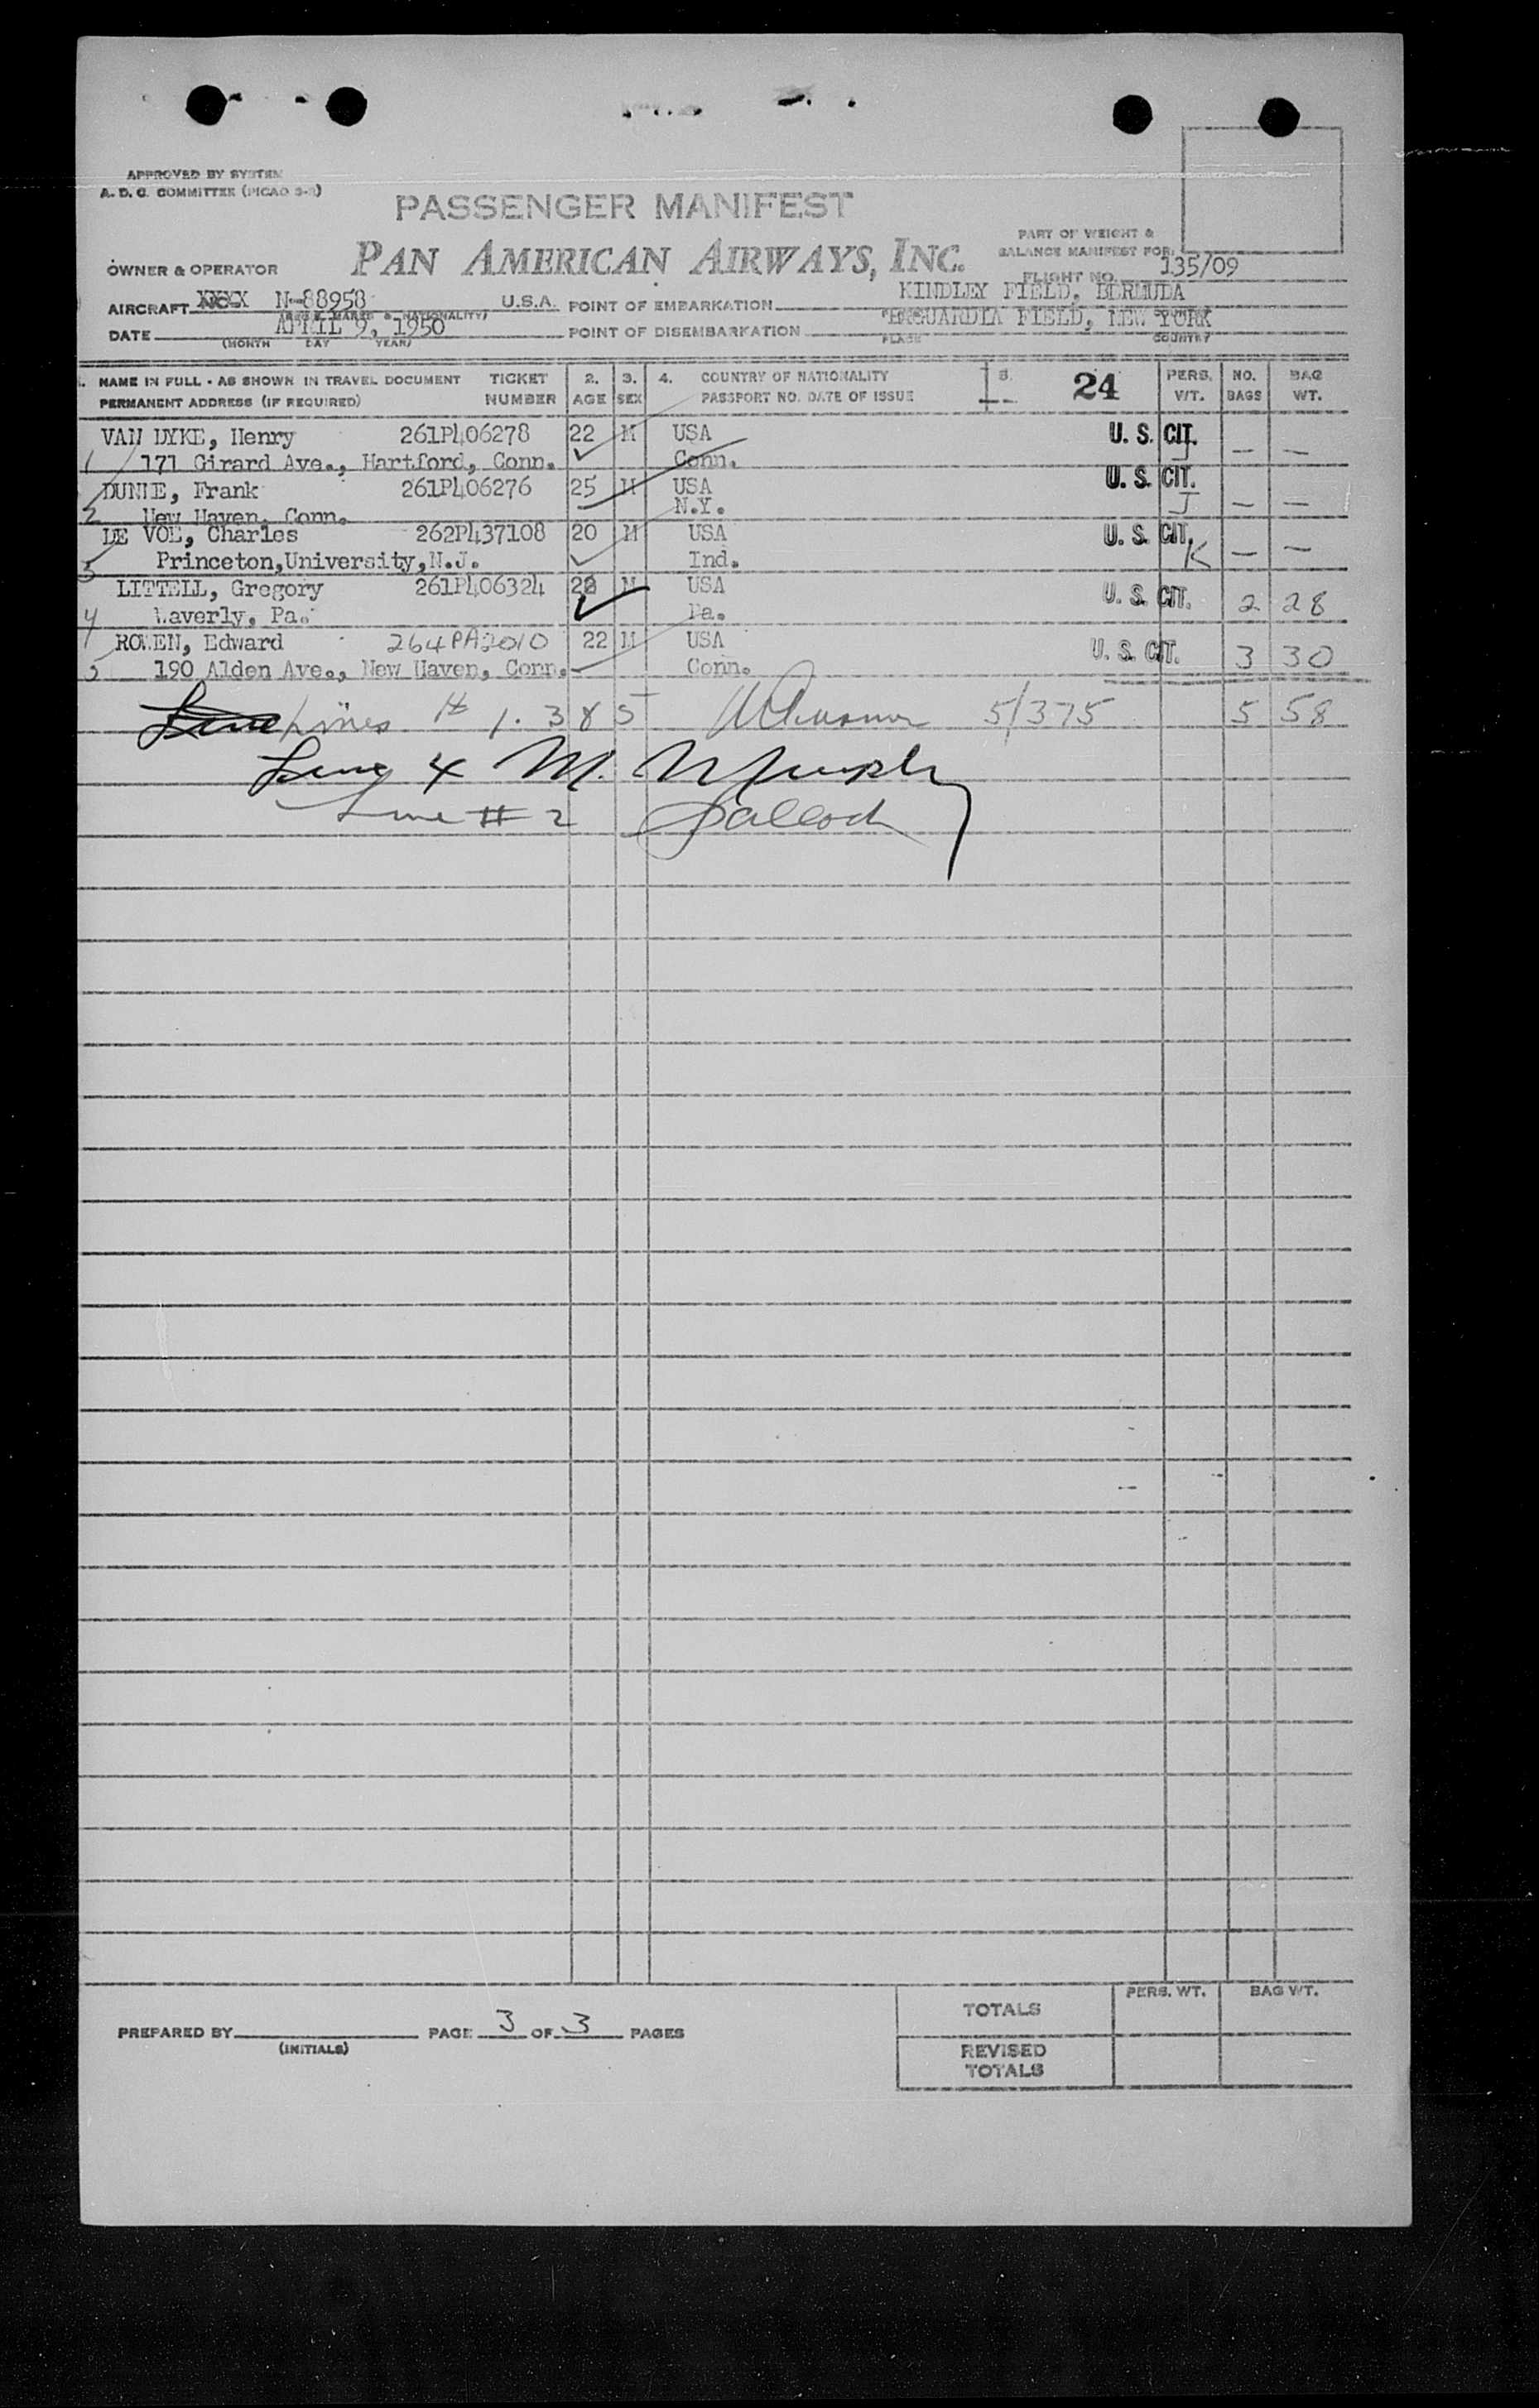 APPROVED BY SYSTEM
A. D. C. COMMITTEE (PICAO 3-2)
PASSENGER MANIFEST
PART OF WEIGHT &
BALANCE MANIFEST FOR
OWNER & OPERATOR PAN AMERICAN AIRWAYS, INC. FLIGHT NO. 135/09
AIRCRAFT N-88958 U.S.A. POINT OF EMBARKATION KINDLEY FIELD, BERMUDA
DATE APRIL 9, 1950 POINT OF DISEMBARKATION LAGUARDIA FIELD, NEW YORK
(MONTH DAY YEAR) PLACE COUNTRY
1. NAME IN FULL - AS SHOWN IN TRAVEL DOCUMENT TICKET 2. 3. 4. COUNTRY OF NATIONALITY 5. 24 PERS. NO. BAG
PERMANENT ADDRESS (IF REQUIRED) NUMBER AGE SEX PASSPORT NO. DATE OF ISSUE WT. BAGS WT.
VAN DYKE, Henry 261P406278 22 M USA U. S. CIT.
1 171 Girard Ave., Hartford, Conn. Conn. J — —
DUNIE, Frank 261P406276 25 M USA U. S. CIT.
2 New Haven, Conn. N.Y. J — —
DE VOE, Charles 262P437108 20 M USA U. S. CIT.
3 Princeton,University,N.J. Ind. K — —
LITTELL, Gregory 261P406324 22 M USA U. S. CIT. 2 28
4 Waverly, Pa. Pa.
ROWEN, Edward 264PA2010 22 M USA U. S. CIT. 3 30
5 190 Alden Ave., New Haven, Conn. Conn.
Lines # 1. 3 & 5 5/375 5 58
Line 4 M. Murphy
Line # 2
PREPARED BY PAGE 3 OF 3 PAGES
(INITIALS)
PERS. WT. BAG WT.
TOTALS
REVISED
TOTALS